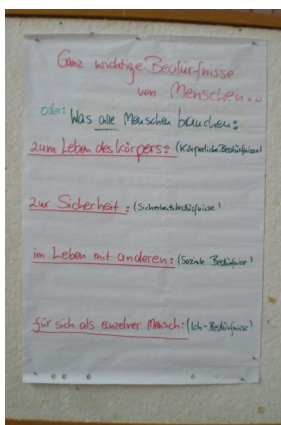 Ganz wichtige Bedürfnisse
von Menschen...
oder: Was alle Menschen brauchen:
zum Leben des Körpers: (Körperliche Bedürfnisse)
zur Sicherheit: (Sicherheitsbedürfnisse)
im Leben mit anderen: (Soziale Bedürfnisse)
für sich als einzelner Mensch: (Ich-Bedürfnisse)